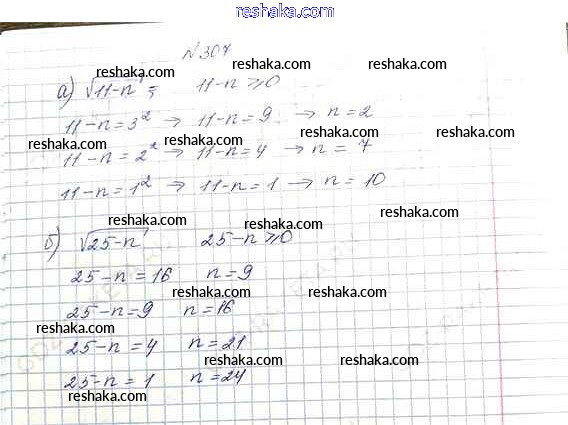 reshaka.com
№307
reshaka.com reshaka.com reshaka.com
а) √11-n ; 11-n ≥ 0
reshaka.com reshaka.com
11-n=3² → 11-n=9 → n=2
reshaka.com reshaka.com reshaka.com
11-n=2² → 11-n=4 → n=7
11-n=1² → 11-n=1 → n=10
reshaka.com reshaka.com reshaka.com
б) √25-n 25-n ≥ 0
25-n=16 n=9
reshaka.com reshaka.com
25-n=9 n=16
reshaka.com
25-n=4 n=21
reshaka.com reshaka.com
25-n=1 n=24
reshaka.com